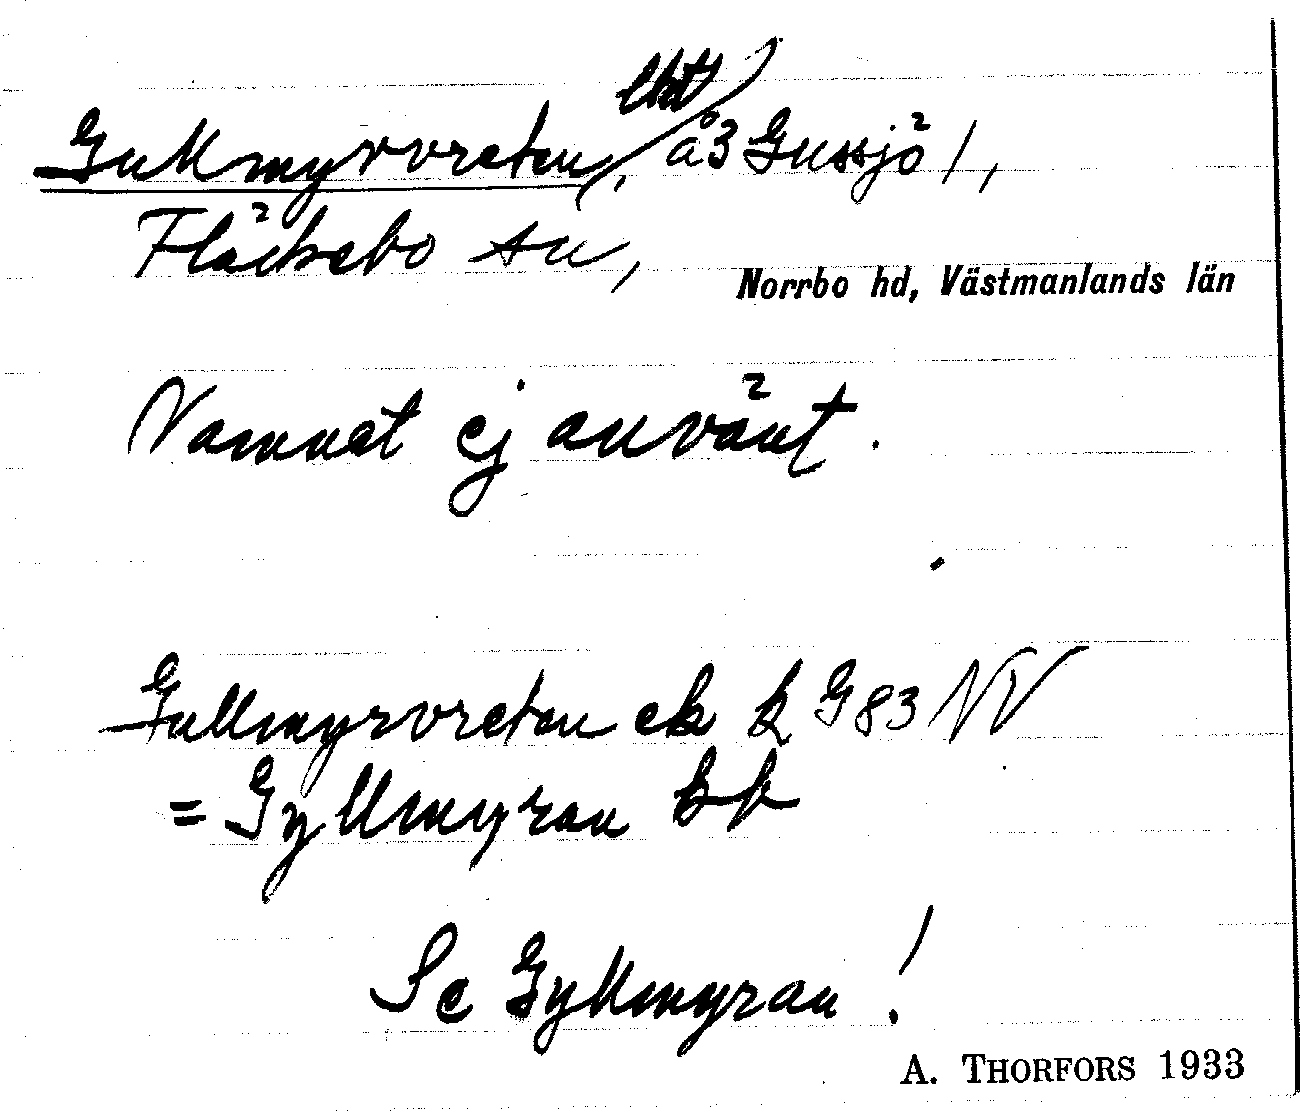 Gullmyrvreten, åkt
å3 Gussjö /,
Fläckebo sn,
Norrbo hd, Västmanlands län
Namnet ej använt.
Gullmyrvreten ek k G83 NV
= Gyllmyran bk
Se Gyllmyran!
A. THORFORS 1933